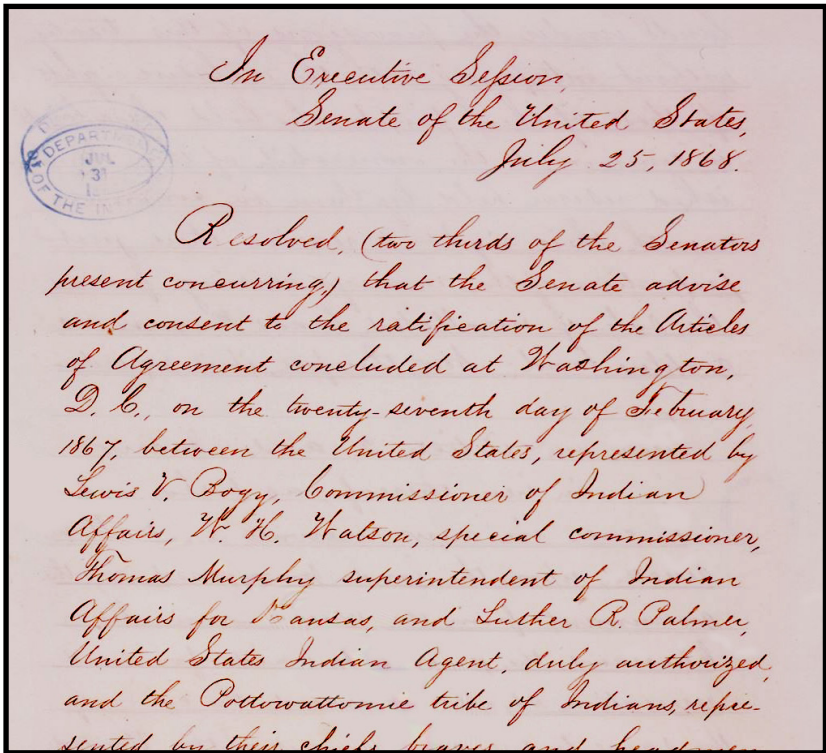 In Executive Session,
Senate of the United States,
July 25, 1868.
DEPARTMENT
JUL
31
OF THE
Resolved, (two thirds of the Senators
present concurring,) that the Senate advise
and consent to the ratification of the Articles
of Agreement concluded at Washington,
D. C., on the twenty-seventh day of February,
1867, between the United States, represented by
Lewis V. Bogy, Commissioner of Indian
Affairs, W. H. Watson, special commissioner,
Thomas Murphy superintendent of Indian
Affairs for Kansas, and Luther R. Palmer,
United States Indian Agent, duly authorized,
and the Pottowattomie tribe of Indians, repre-
sented by their chiefs braves and headmen